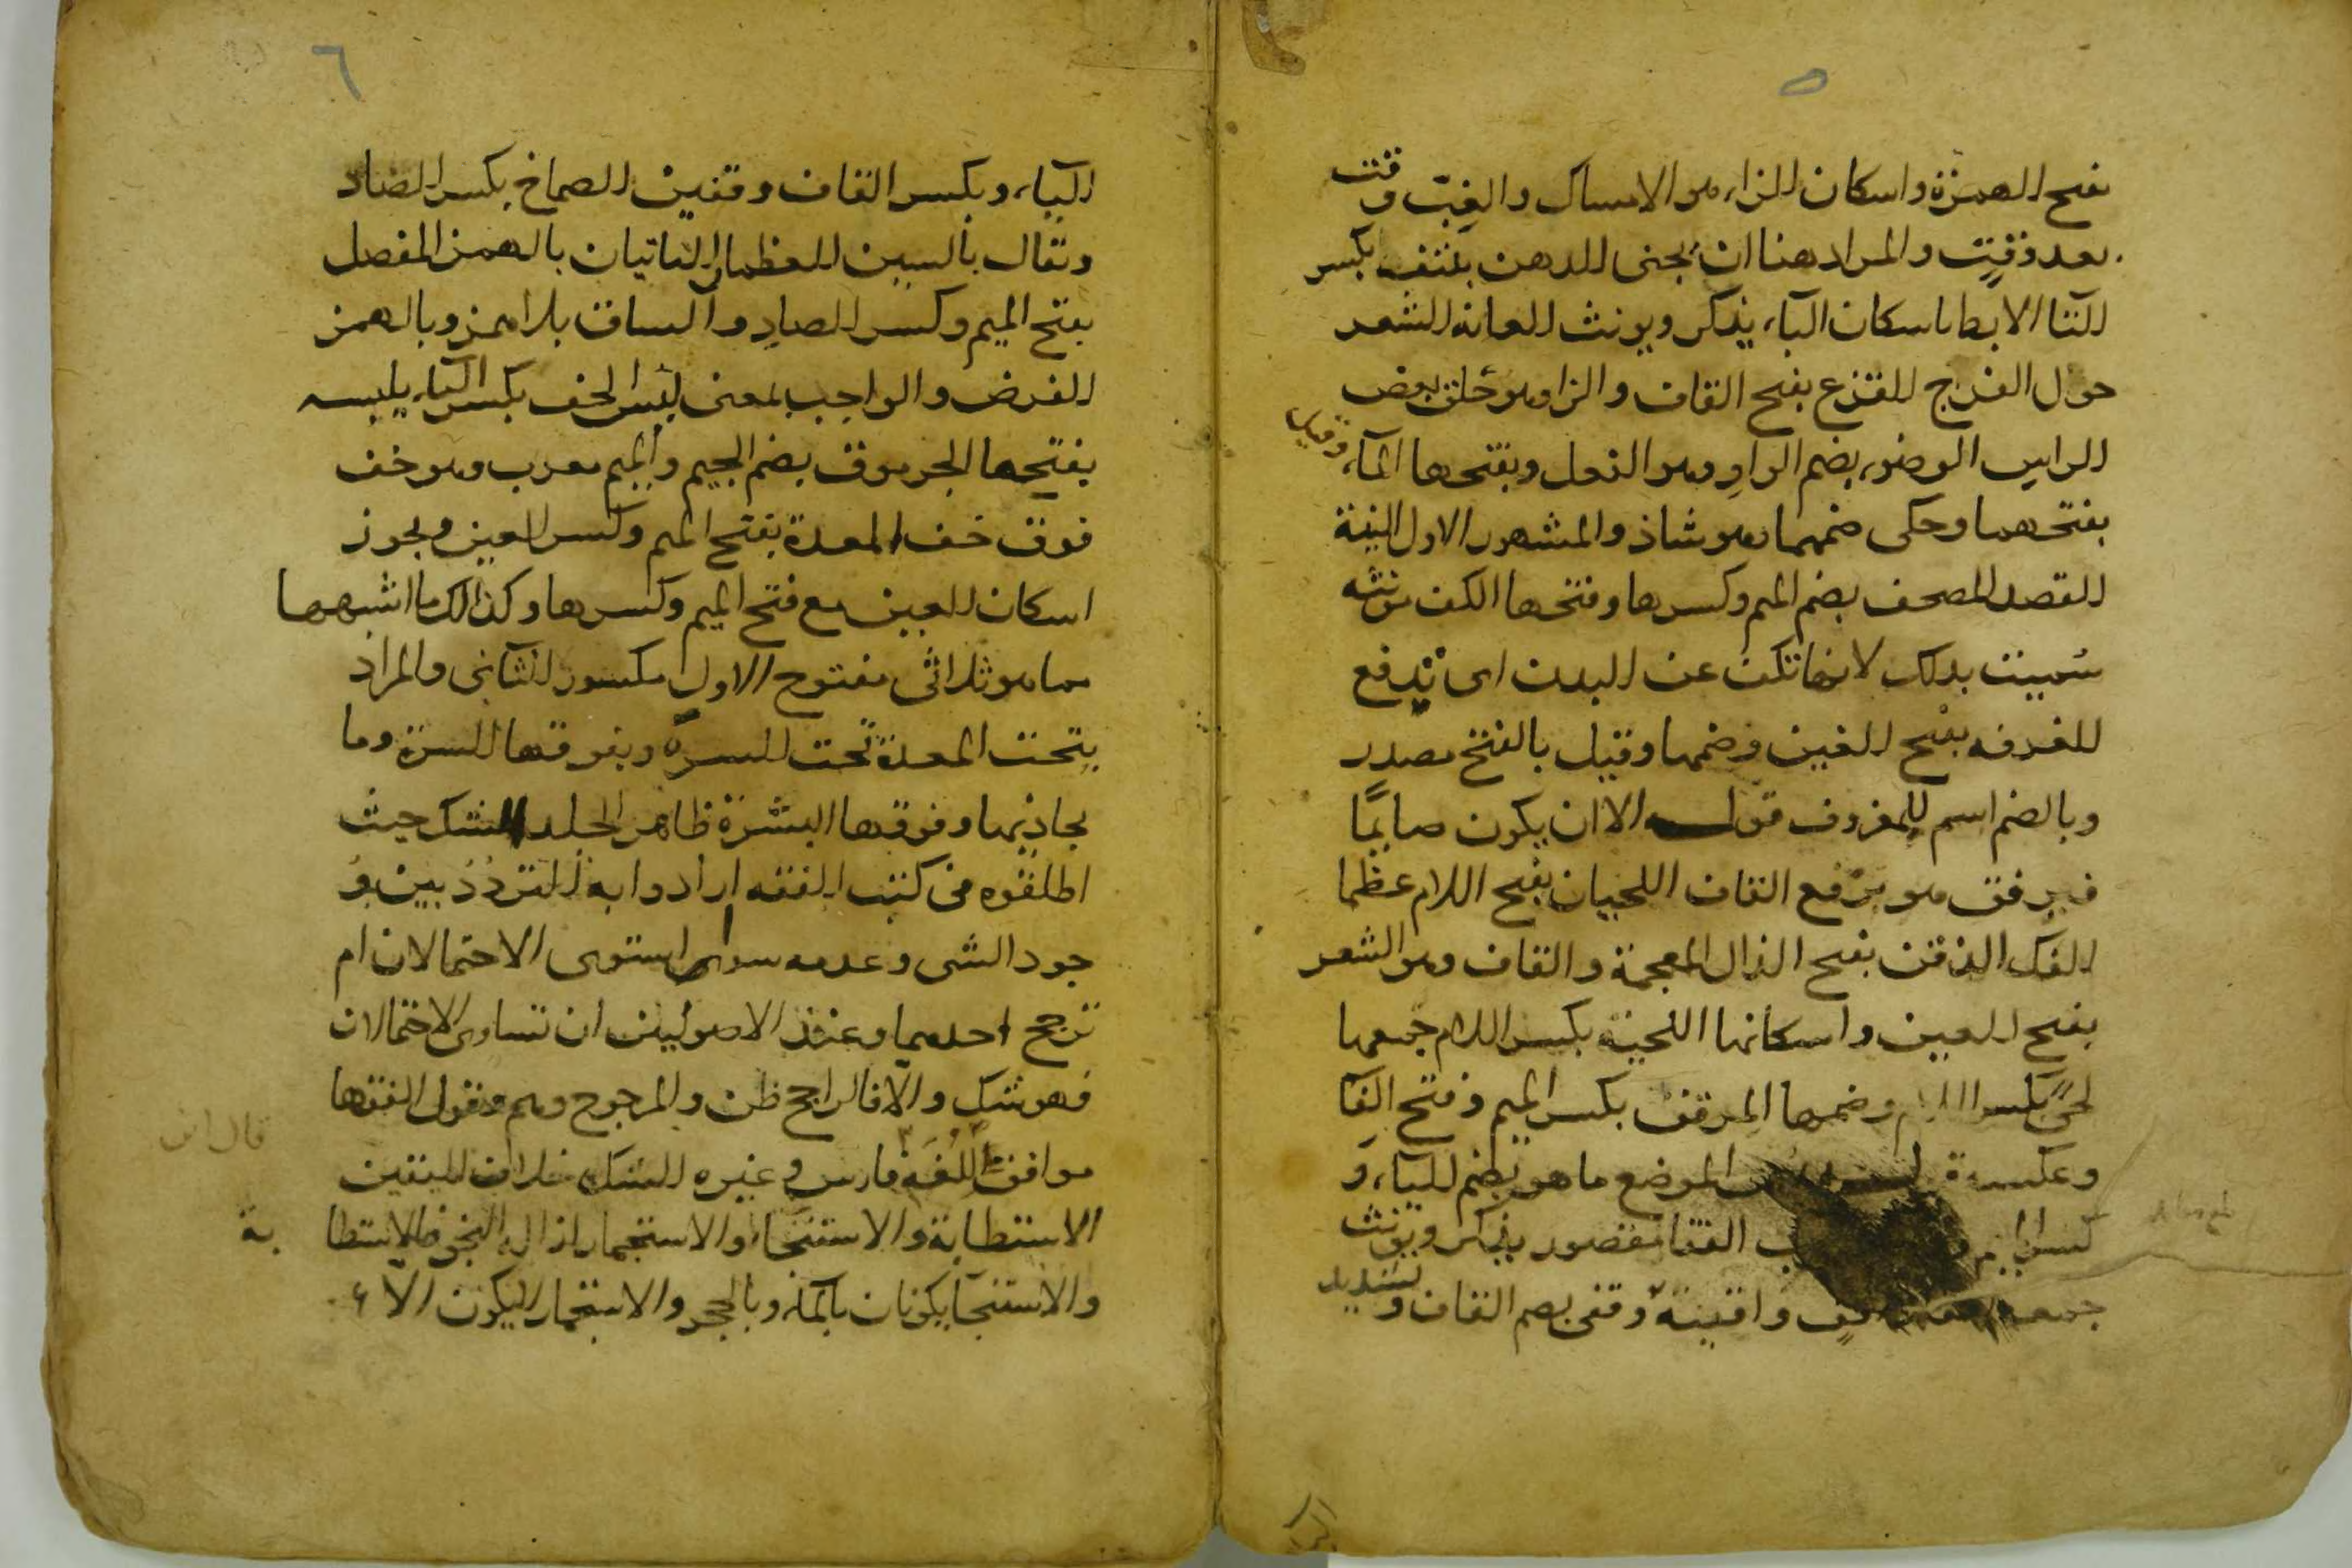 ٥
بفتح الهمزة واسكان الزاء هو الامساك والغِبّ وقت
بعد وقتٍ والمراد هنا ان يجف الدهن ينتف بكسر
التا الابط باسكان البآء يذكر ويونث العانة الشعر
حول الفرج القزع بفتح القاف والزا وهو حلق بعض
الراس الوضوء بضم الواو وهو الفعل وبفتحها المآء وقيل
بفتحهما وحكى ضمهما وهو شاذ والمشهور الاول النية
القصد المصحف بضم الميم وكسرها وفتحها الكف مونثه
سُميت بذلك لانها تكف عن البدن اى تدفع
الغرفه بفتح الغين وضمها وقيل بالفتح مصدر
وبالضم اسم للمغروف قوله الا ان يكون صايمًا
فيرفق هو برفع القاف اللحيان بفتح اللام عظما
الفك الذقن بفتح الذال المعجمة والقاف وهو الشعر
بفتح العين واسكانها اللحية بكسر اللام جمعها
لحًى بكسر اللام وضمها المِرفق بكسر الميم وفتح الفآ
وعكسه الموضع ما هو بضم اليآء و
كسر القفا مقصور يذكر ويونث
جمعه واقفية وقفى بضم القاف وتشديد
٦
اليآء وبكسر القاف وقفين الصماخ بكسر الصاد
ويقال بالسين العظمان الناتيان بالهمز المفصل
بفتح الميم وكسر الصادِ والساق بلا همز وبالهمز
الفرض والواجب بمعنى لبس الخف بكسر البآء يلبسه
بفتحها الجرموق بضم الجيم والميم معرب وهو خف
فوق خف المعدة بفتح الميم وكسر العين ويجوز
اسكان العين مع فتح الميم وكسرها وكذالك ما اشبهها
مما هو ثلاثى مفتوح الاول مكسور الثانى والمراد
بتحت المعدة تحت السرة وبفوقها السرة وما
يحاذيها وفوقها البشرة ظاهر الجلد الشك حيث
اطلقوه فى كتب الفقه ارادوا به التردُدُ بين وُ
جود الشى وعدمه سواء استوى الاحتمالان ام
ترجح احدهما وعند الاصوليين ان تساوى الاحتمالان
فهو شك والا فالراجح ظن والمرجوح وهم وقول الفقها
موافق اللغة فارس وغيره الشك خلاف اليقين
قال ابن
الاستطابة والاستنجاء والاستجمار ازالة النجو فالاستطا
بة
والاستنجآ يكونان بالمآء وبالحجر والاستجمار لا يكون الا